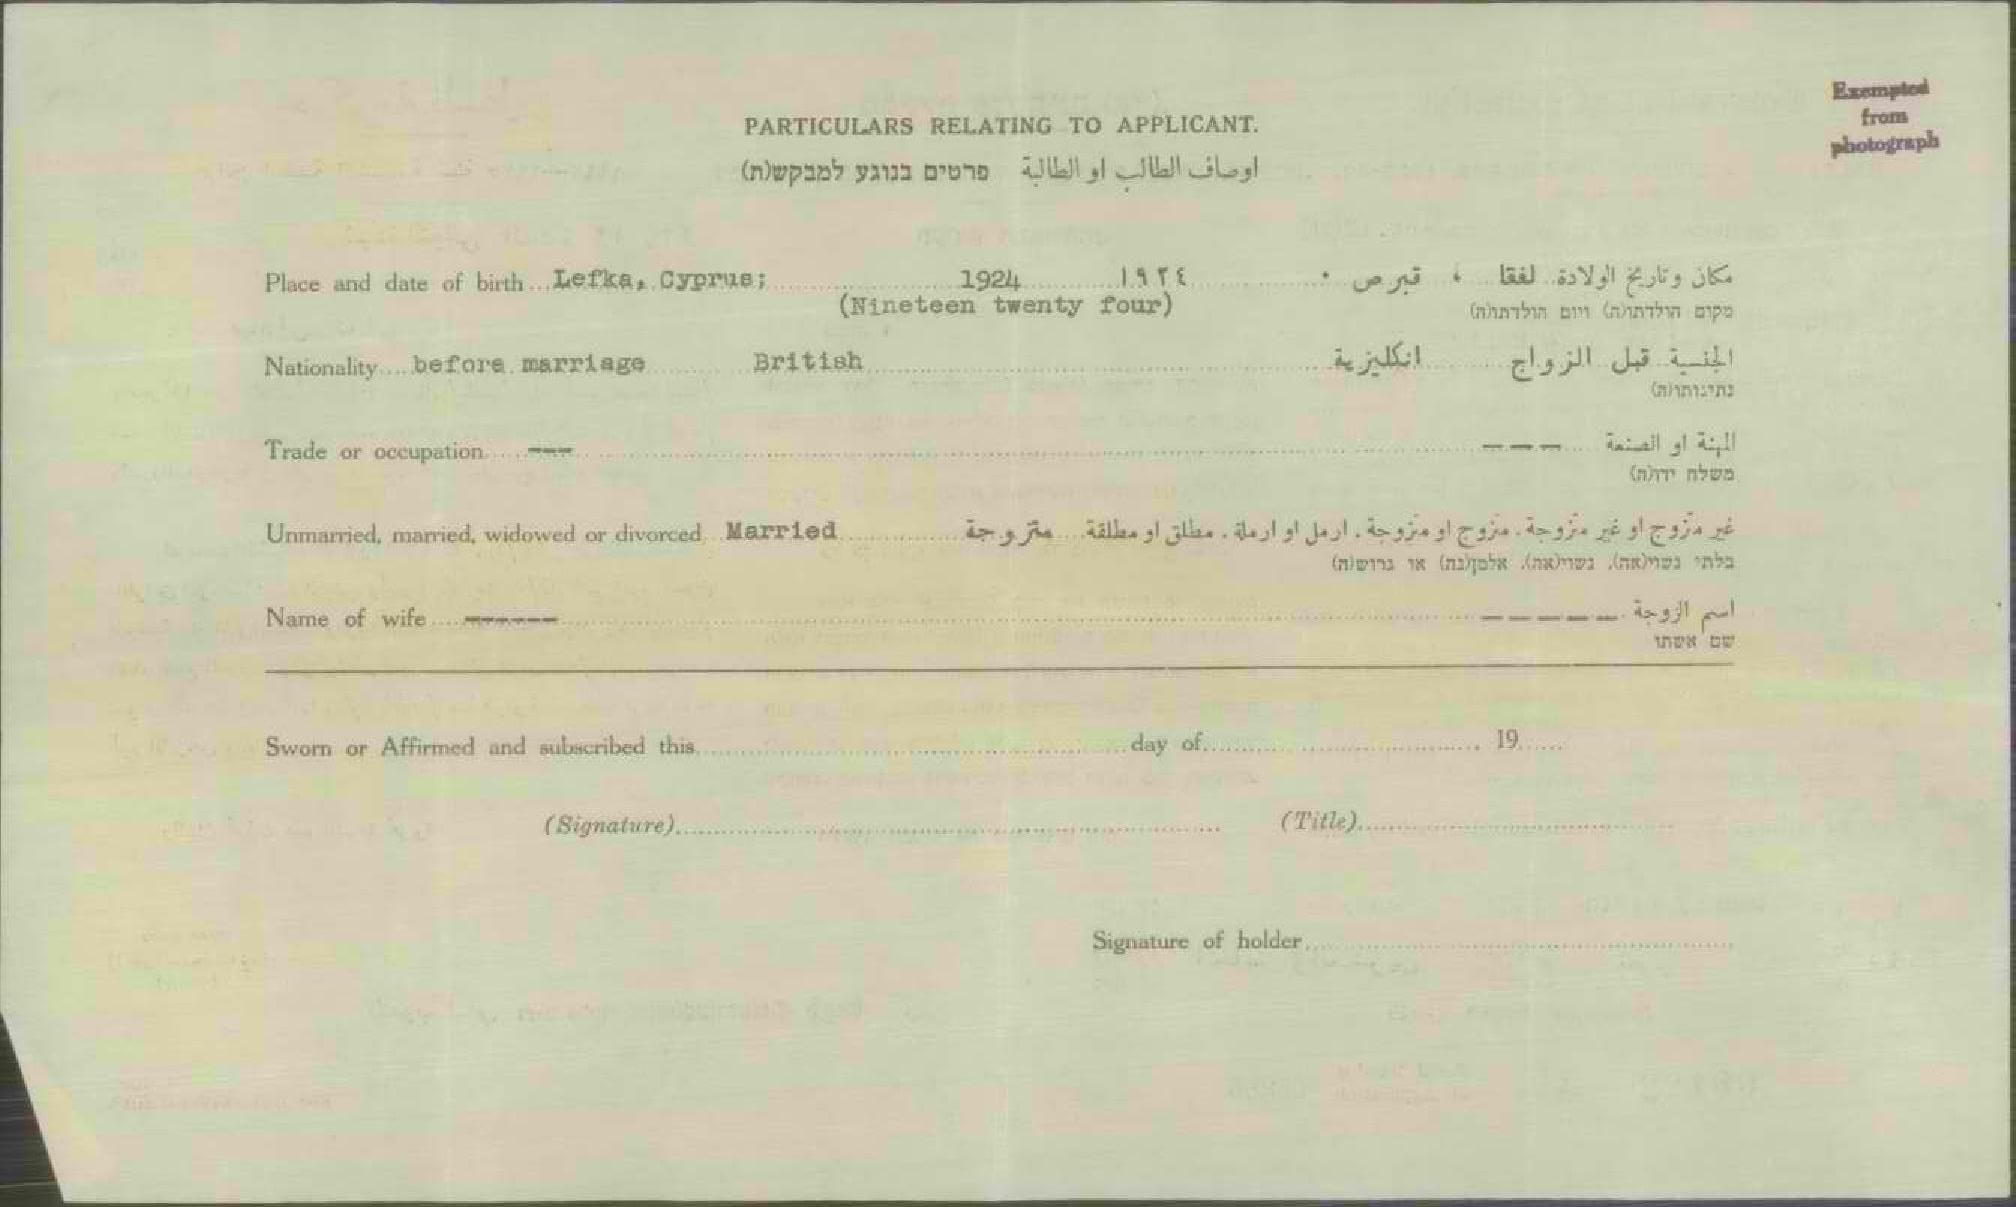 Exempted
from
photograph
PARTICULARS RELATING TO APPLICANT.
اوصاف الطالب او الطالبة פרטים בנוגע למבקש(ת)
Place and date of birth ... Lefka, Cyprus; 1924 ١٩٢٤ مكان وتاريخ الولادة لفقا ، قبرص .
(Nineteen twenty four) מקום הולדתו(ה) ויום הולדתו(ה)
Nationality.... before marriage British الجنسية قبل الزواج انكليزية
נתינותו(ה)
Trade or occupation..... --- المهنة او الصنعة — — —
משלח ידו(ה)
Unmarried, married, widowed or divorced Married غير متزوج او غير متزوجة، متزوج او متزوجة، ارمل او ارملة، مطلق او مطلقة متزوجة
בלתי נשוי(אה), נשוי(אה), אלמן(נה) או גרוש(ה)
Name of wife ... ------ اسم الزوجة — — — — —
שם אשתו
Sworn or Affirmed and subscribed this.......... day of.......... 19......
(Signature).......... (Title)..........
Signature of holder..........